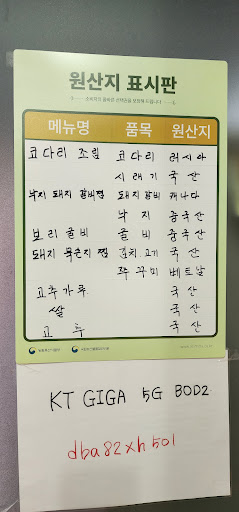 원산지 표시판
메뉴명 품목 원산지
코다리 조림 코다리 러시아
시래기 국산
낙지 돼지 갈비찜 돼지갈비 캐나다
낙지 중국산
보리굴비 굴비 중국산
돼지 묵은지 찜 김치.고기 국산
쭈꾸미 베트남
고추가루 국산
쌀 국산
고추 국산
KT GIGA 5G B0D2
dba82xh501